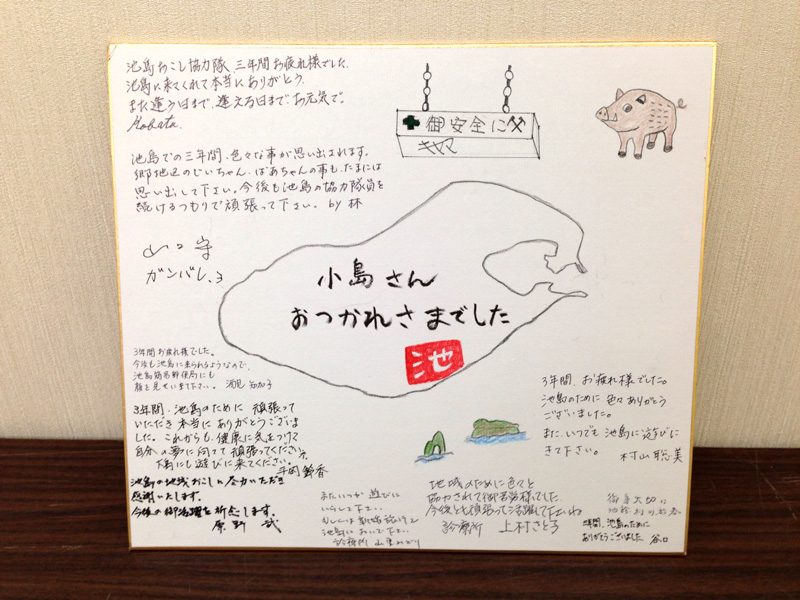 池島おこし協力隊 三年間お疲れ様でした。
池島に来てくれて本当にありがとう。
また逢う日まで、逢える日まで、お元気で。
池島での三年間、色々な事が思い出されます。
郷地区のじいちゃん・ばあちゃんの事も、たまには
思い出して下さい。今後も池島の協力隊員を
続けるつもりで頑張って下さい。 by 林
ガンバレ
御安全に
キヤマ
小島さん
おつかれさまでした
池
3年間お疲れ様でした。
今後も池島に来られるようなので、
池島簡易郵便局にも
顔を見せて下さい。
3年間、池島のために 頑張って
いただき本当に ありがとうございま
した。これからも、健康に気をつけて
自分の夢に向けて頑張ってください。
下島にも遊びに来てください。
池島の地域おこしに尽力いただき
感謝いたします。
今後の御活躍を祈念します。
原野 武
またいつか 遊びに
いらして下さい。
池島において下さい。
診療所
地域のために色々と
協力されて御苦労様でした。
今後とも頑張って活躍して下さいね
診療所 上村さとる
3年間、お疲れ様でした。
池島のために 色々ありがとう
ございました。
また、いつでも 池島に遊びに
きて下さい。
村山聡美
御身大切に
3年間、池島のために
ありがとうございました 谷口